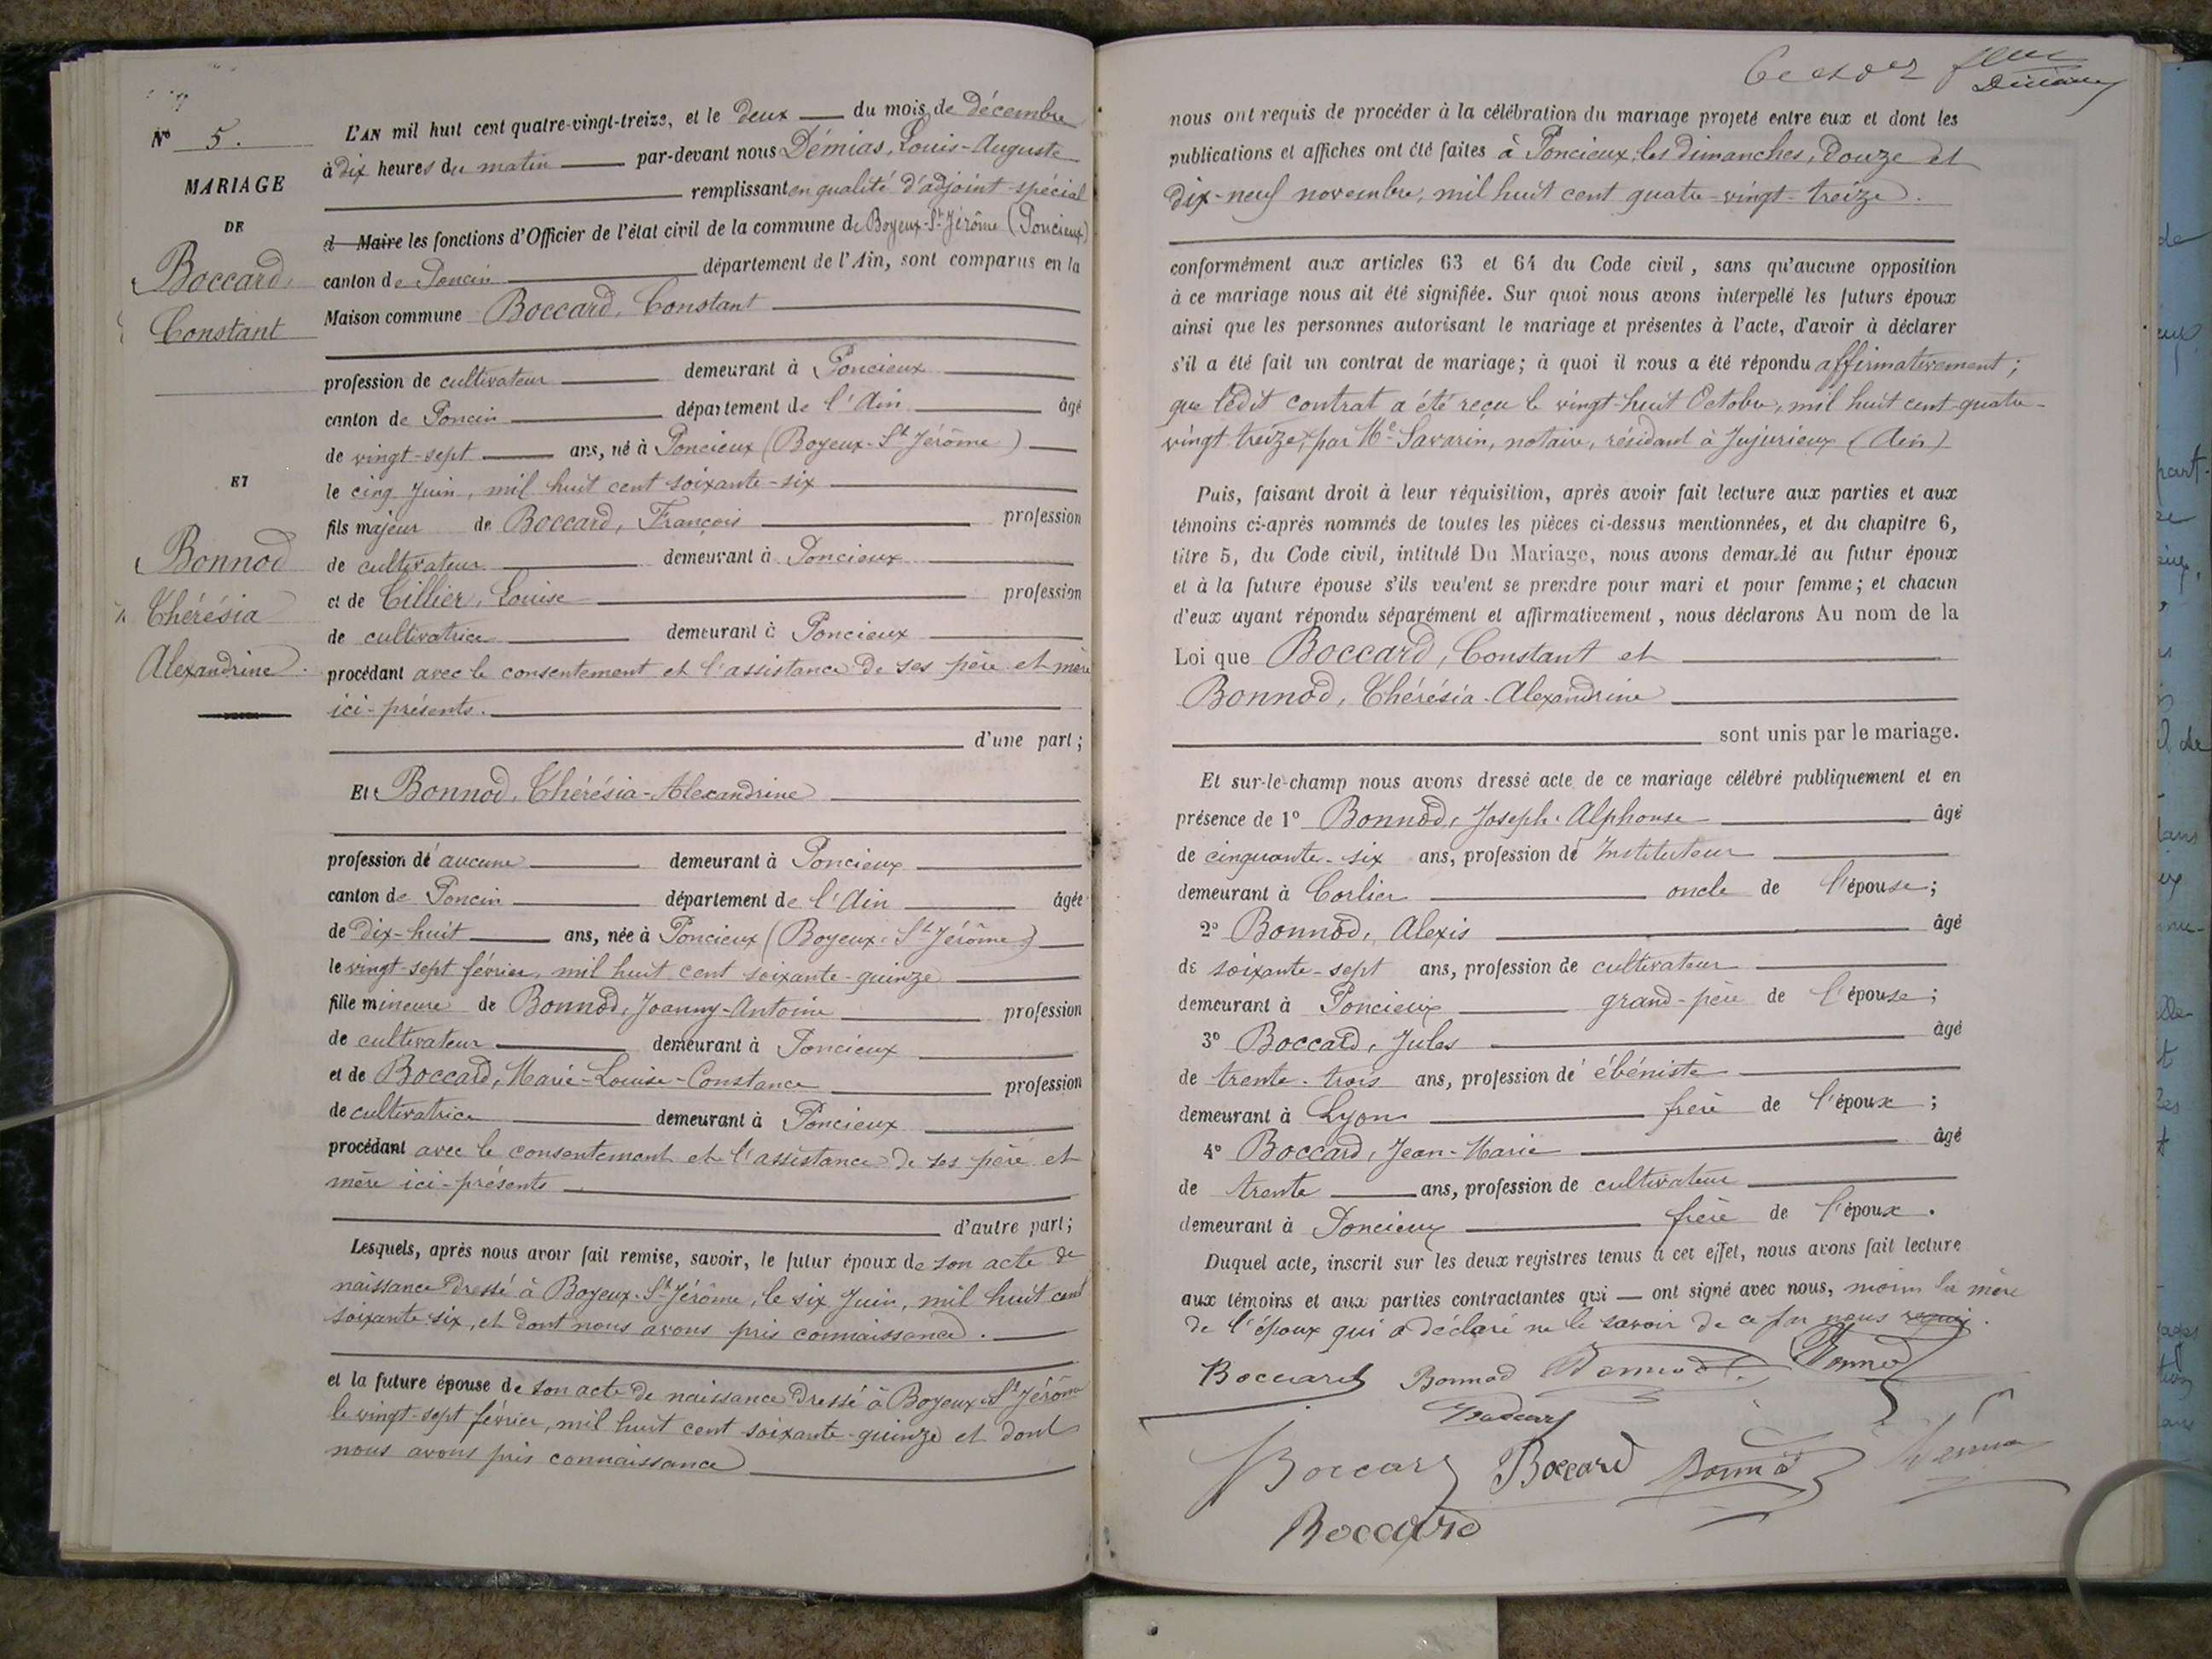 N° 5.
MARIAGE
DE
Boccard,
Constant
ET
Bonnod
Thérésia
Alexandrine.
L'AN mil huit cent quatre-vingt-treize, et le deux du mois de décembre
à dix heures du matin par-devant nous Démias, Louis-Auguste
remplissant en qualité d'adjoint spécial
d Maire les fonctions d'Officier de l'état civil de la commune de Boyeux-St Jérôme (Poncieux)
canton de Poncin département de l'Ain, sont comparus en la
Maison commune Boccard, Constant
profession de cultivateur demeurant à Poncieux
canton de Poncin département de l'Ain âgé
de vingt-sept ans, né à Poncieux (Boyeux-St Jérôme)
le cinq Juin, mil huit cent soixante-six
fils majeur de Boccard, François profession
de cultivateur demeurant à Poncieux
et de Tillier, Louise profession
de cultivatrice demeurant à Poncieux
procédant avec le consentement et l'assistance de ses père et mère
ici-présents.
d'une part;
Et Bonnod, Thérésia-Alexandrine
profession de aucune demeurant à Poncieux
canton de Poncin département de l'Ain âgée
de dix-huit ans, née à Poncieux (Boyeux-St Jérôme)
le vingt-sept février, mil huit cent soixante-quinze
fille mineure de Bonnod, Joanny-Antoine profession
de cultivateur demeurant à Poncieux
et de Boccard, Marie-Louise-Constance profession
de cultivatrice demeurant à Poncieux
procédant avec le consentement et l'assistance de ses père et
mère ici-présents
d'autre part;
Lesquels, après nous avoir fait remise, savoir, le futur époux de son acte de
naissance dressé à Boyeux-St Jérôme, le six Juin, mil huit cent
soixante-six, et dont nous avons pris connaissance.
et la future épouse de son acte de naissance dressé à Boyeux-St Jérôme
le vingt-sept février, mil huit cent soixante-quinze et dont
nous avons pris connaissance
nous ont requis de procéder à la célébration du mariage projeté entre eux et dont les
publications et affiches ont été faites à Poncieux, les dimanches, douze et
dix-neuf novembre, mil huit cent quatre-vingt-treize.
conformément aux articles 63 et 64 du Code civil, sans qu'aucune opposition
à ce mariage nous ait été signifiée. Sur quoi nous avons interpellé les futurs époux
ainsi que les personnes autorisant le mariage et présentes à l'acte, d'avoir à déclarer
s'il a été fait un contrat de mariage; à quoi il nous a été répondu affirmativement;
que ledit contrat a été reçu le vingt-huit Octobre, mil huit cent quatre-
vingt treize, par Me Savarin, notaire, résidant à Jujurieux (Ain)
Puis, faisant droit à leur réquisition, après avoir fait lecture aux parties et aux
témoins ci-après nommés de toutes les pièces ci-dessus mentionnées, et du chapitre 6,
titre 5, du Code civil, intitulé Du Mariage, nous avons demandé au futur époux
et à la future épouse s'ils veulent se prendre pour mari et pour femme; et chacun
d'eux ayant répondu séparément et affirmativement, nous déclarons Au nom de la
Loi que Boccard, Constant et
Bonnod, Thérésia-Alexandrine
sont unis par le mariage.
Et sur-le-champ nous avons dressé acte de ce mariage célébré publiquement et en
présence de 1° Bonnod, Joseph-Alphonse âgé
de cinquante-six ans, profession de Instituteur
demeurant à Corlier oncle de l'épouse;
2° Bonnod, Alexis âgé
de soixante-sept ans, profession de cultivateur
demeurant à Poncieux grand-père de l'épouse;
3° Boccard, Jules âgé
de trente-trois ans, profession de ébéniste
demeurant à Lyon frère de l'époux;
4° Boccard, Jean-Marie âgé
de trente ans, profession de cultivateur
demeurant à Poncieux frère de l'époux.
Duquel acte, inscrit sur les deux registres tenus à cet effet, nous avons fait lecture
aux témoins et aux parties contractantes qui ont signé avec nous, moins la mère
de l'époux qui a déclaré ne le savoir de ce par nous requis.
Boccard Bonnod Bonnod Bonnod
Boccard Boccard Bonnod
Boccard